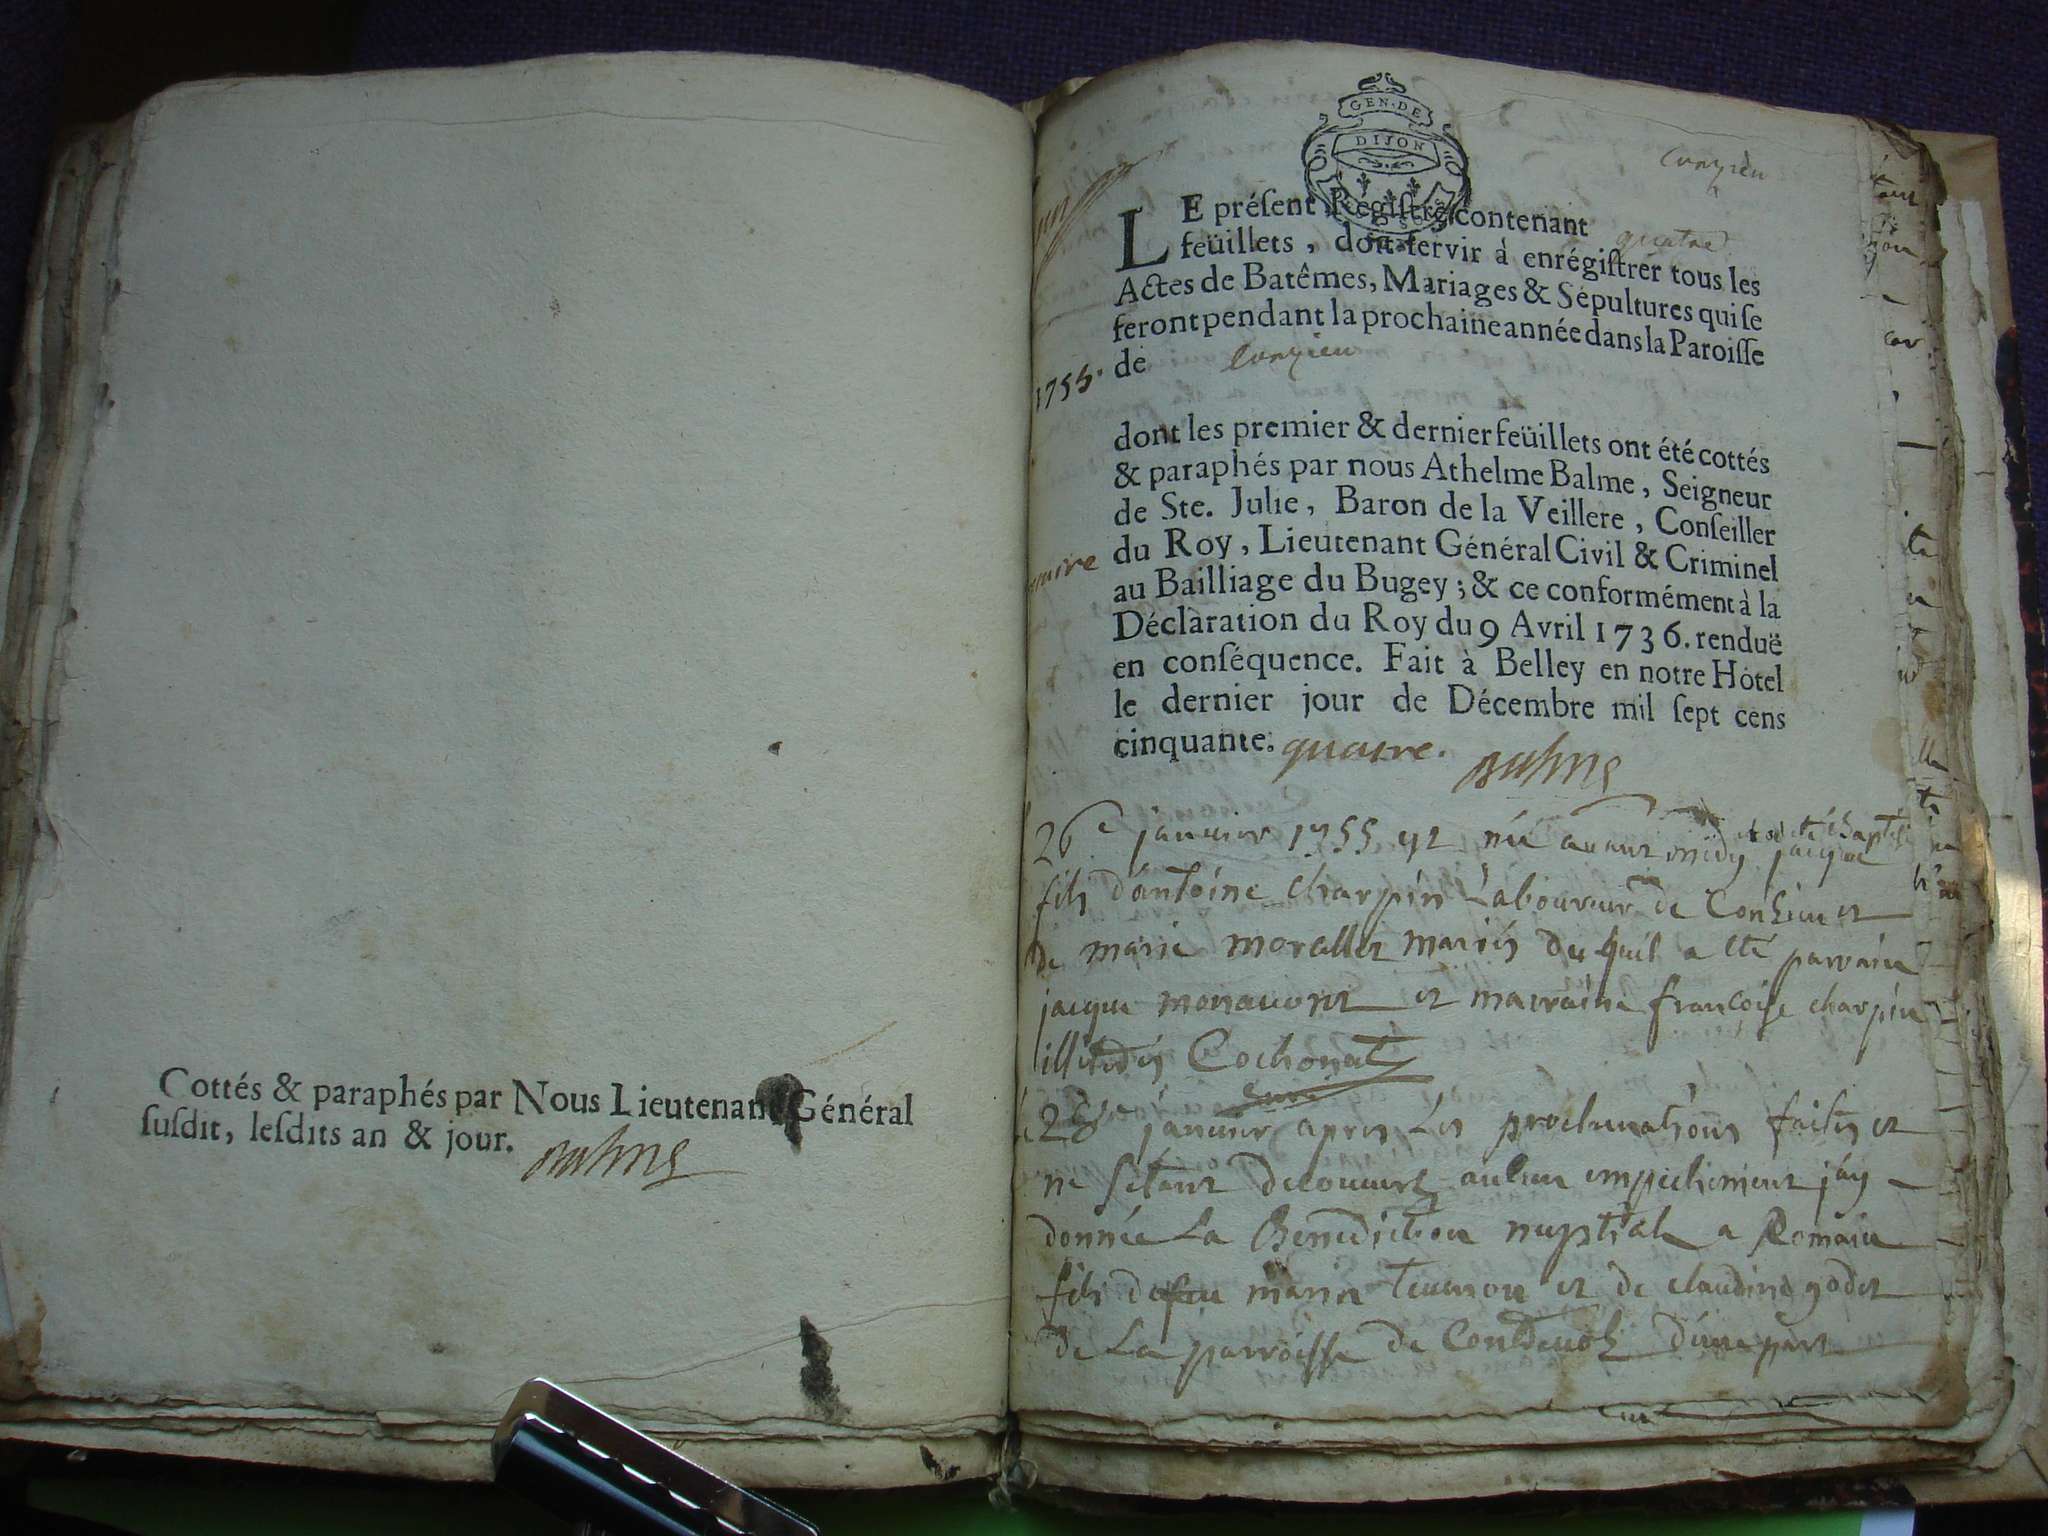 Cottés & paraphés par Nous Lieutenant Général
ſuſdit, leſdits an & jour.
GEN. DE
DIJON
LE préſent Regiſtre contenant quatre
feüillets, doit ſervir à enrégiſtrer tous les
Actes de Batêmes, Mariages & Sépultures qui ſe
feront pendant la prochaine année dans la Paroiſſe
de
1755.
dont les premier & dernier feüillets ont été cottés
& paraphés par nous Athelme Balme, Seigneur
de Ste. Julie, Baron de la Veillere, Conſeiller
du Roy, Lieutenant Général Civil & Criminel
au Bailliage du Bugey; & ce conformément à la
Déclaration du Roy du 9 Avril 1736. renduë
en conſéquence. Fait à Belley en notre Hôtel
le dernier jour de Décembre mil ſept cens
cinquante. quatre.
26e janvier 1755 et né avant midy jacque
fils d'antoine charpin Laboureur de et
de marie morallet mariés duquel a eté parrain
jacque et marraine francoise charpin
illiterés Cochonat
curé
Le 28e janvier apres Les proclamations faites et
ne setant decouvert aucun empechement jay
donnée La Benediction nuptiale a Romain
fils de feu marin et de claudine godet
de La parroisse de d'une part